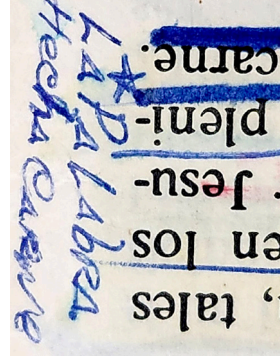 , tales
en los
Jesu-
pleni-
carne.
La Palabra
Hecha Carne